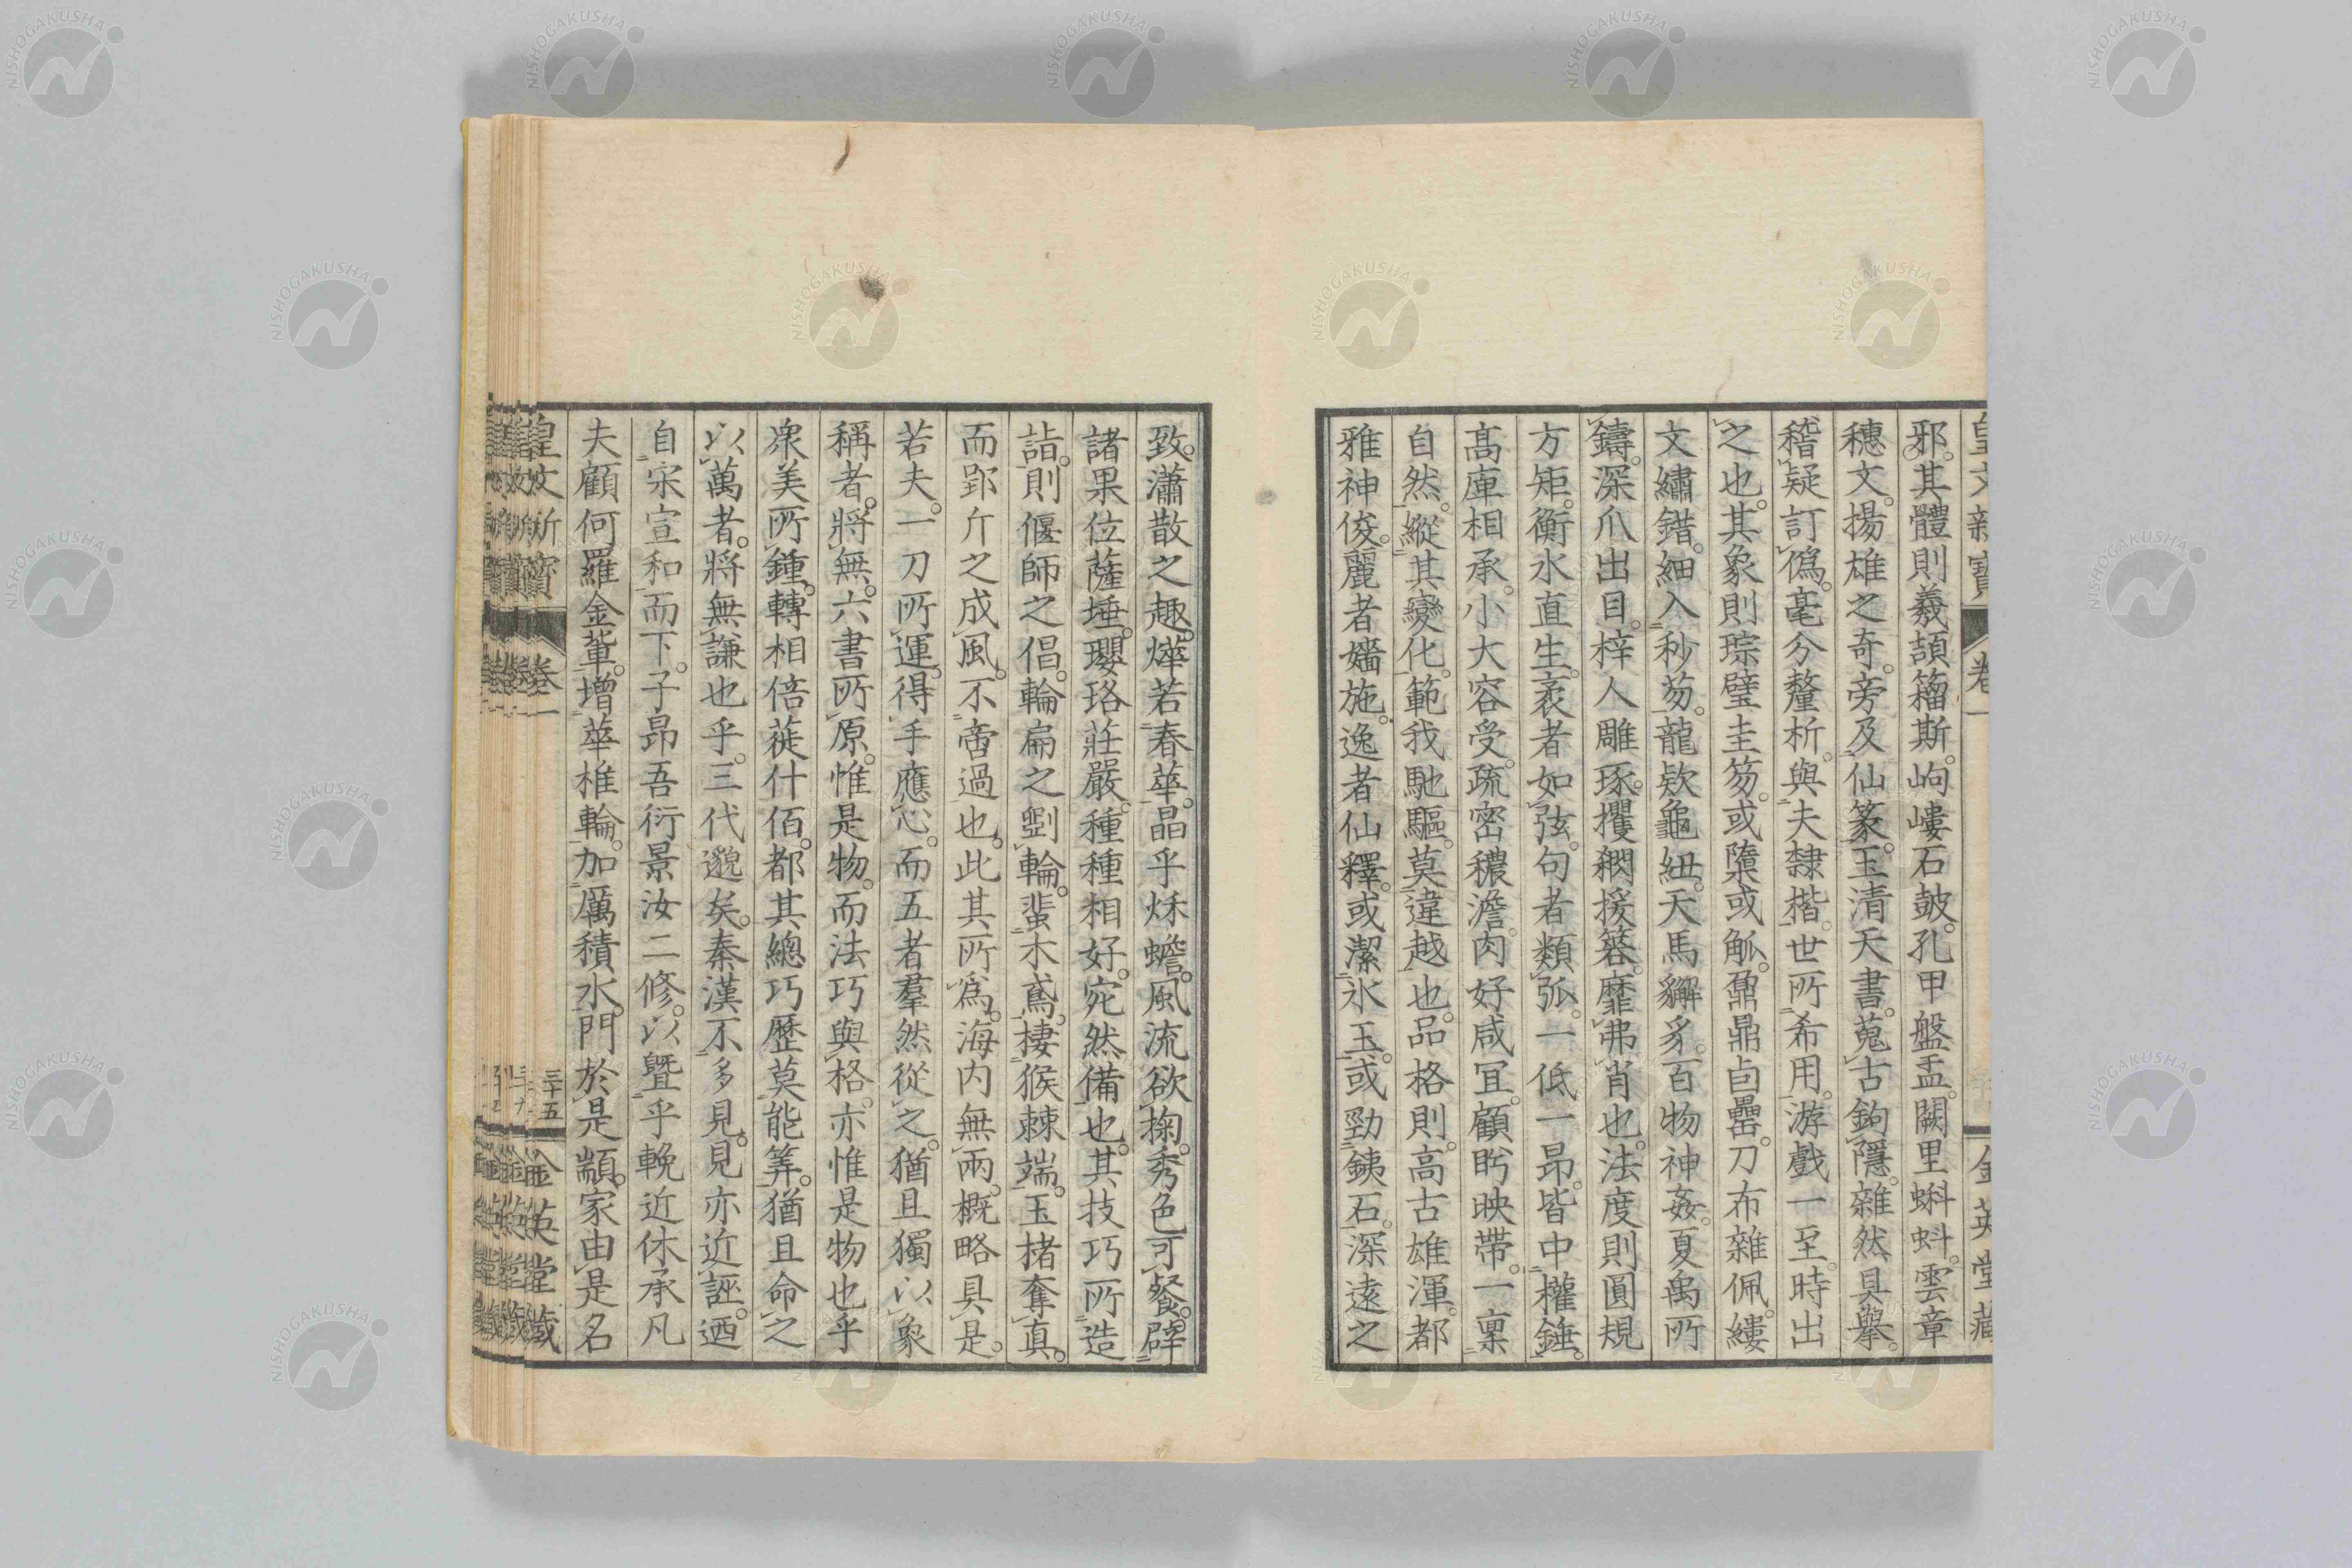 邪。其體則羲頡籀斯。岣嶁石鼓。孔甲盤盂。闕里蝌蚪。雲章
穗文。揚雄之奇。旁及仙篆。玉清天書。蒐古鉤隱。雜然具舉。
稽疑訂僞。毫分釐析。與夫隸楷。世所希用。游戲一至。時出
之也。其象則琮璧圭笏。或隳或觚。鼐鼎卣罍。刀布雜佩。縷
文繡錯。細入秒芴。龍欵龜紐。天馬貜豸。百物神姦。夏禹所
鑄。深爪出目。梓人雕琢。攫閷援簭。靡弗肖也。法度則圓規
方矩。衡水直生。衺者如弦。句者類弧。一低一昂。皆中權錘。
高庳相承。小大容受。疏密穠澹。肉好咸冝。顧眄映帶。一稟
自然。縱其變化。範我馳驅。莫違越也。品格則高古雄渾。都
雅神俊。麗者嬙施。逸者仙釋。或潔氷玉。或勁銕石。深遠之
致。瀟散之趣。燁若春華。晶乎烁蟾。風流欲掬。秀色可餐。辟
諸果位薩埵。瓔珞莊嚴。種種相好。宛然備也。其技巧所造
詣。則偃師之倡。輪扁之劉輪。蜚木鳶。棲猴棘端。玉楮奪真。
而郢斤之成風。不啻過也。此其所爲。海内無兩。概略具是。
若夫。一刀所運。得手應心。而五者羣然從之。猶且獨以象
稱者。將無。六書所原。惟是物。而法巧與格。亦惟是物也乎
衆美所鍾。轉相倍蓰什佰。都其總巧歷莫能筭。猶且命之
以萬者。將無謙也乎。三代邈矣。秦漢不多見。見亦近誣。迺
自宋宣和而下。子昂吾衍景汝二修。以曁乎輓近休承凡
夫顧何羅金輩。增華椎輪。加厲積水。門於是顓。家由是名
皇文新寶 卷一 三十五 金英堂藏